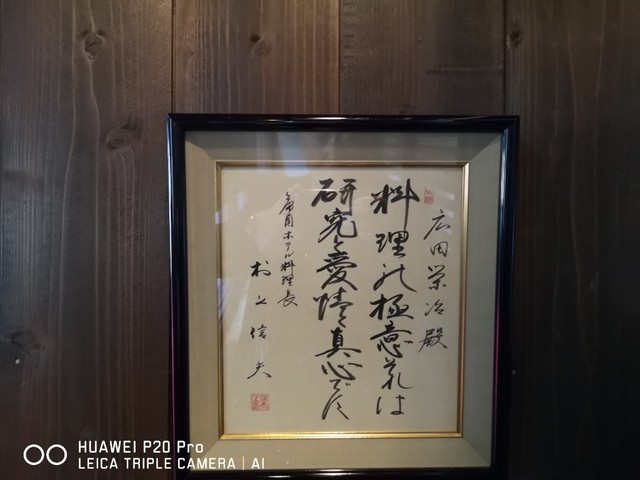 広田栄治殿
料理の極意それは
研究と愛情と真心です
帝国ホテル料理長
村上信夫
HUAWEI P20 Pro
LEICA TRIPLE CAMERA | AI